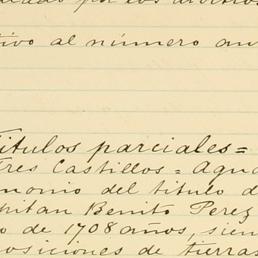 por los
tivo al número an
Títulos parciales =
Tres Castillos = Agua
monio del título d
pitan Benito Perez
o de 1708 años, sien
posiciones de tierras